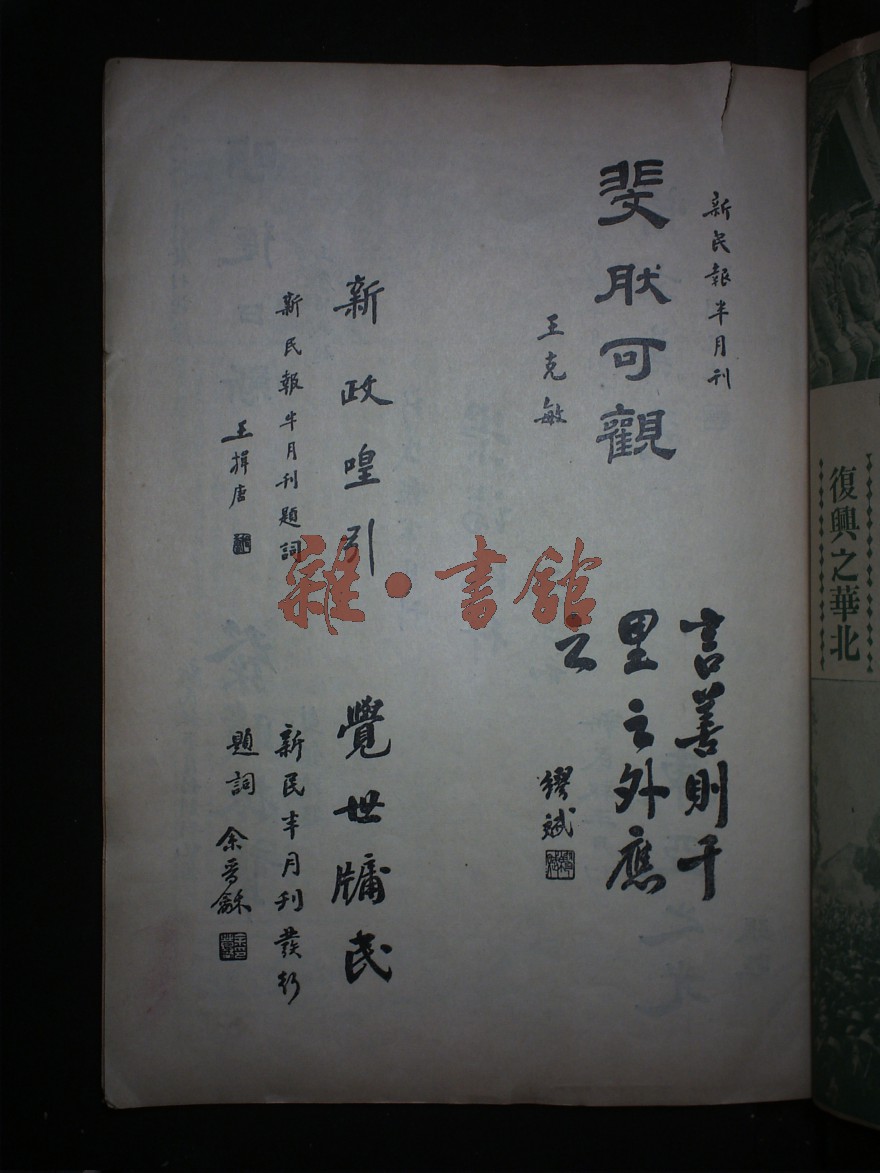 復興之華北
新民報半月刊
斐肰可觀
王克敏
言善則千
里之外應
之
繆斌
新政喤引
新民報半月刊題詞
王揖唐
覺世牖民
新民半月刊發行
題詞
余晉龢
雜·書館